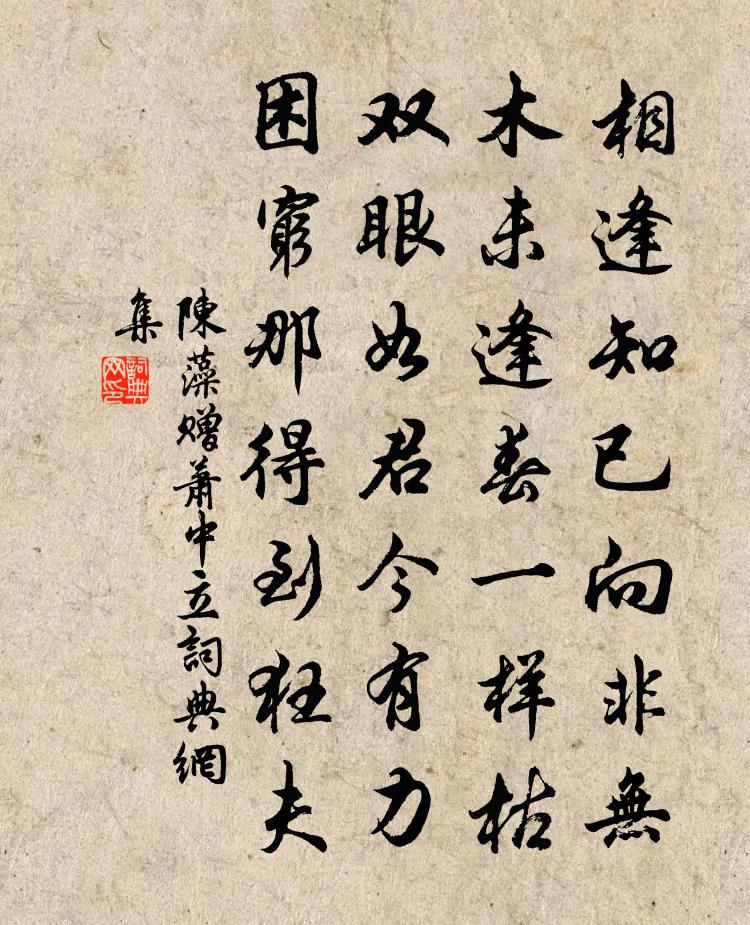 相逢知已向非無
木未逢春一样枯
双眼如君今有力
困窮那得到狂夫
陳藻赠蕭中立詞典網
集
詞典
网印